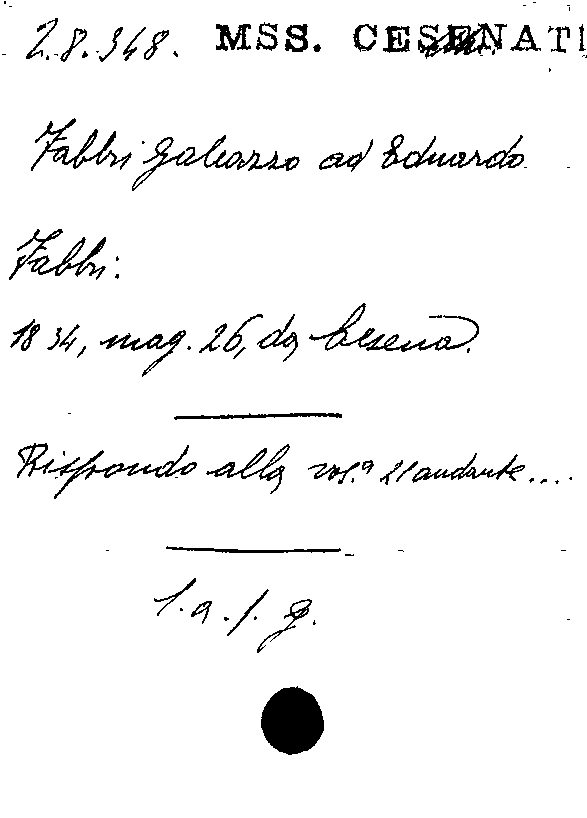 2.8.348. MSS. CESENATI
Fabbri Galeazzo ad Eduardo
Fabbri:
1834, mag. 26, da Cesena.
Rispondo alla vos.ª 21 andante....
l.a.f. g.